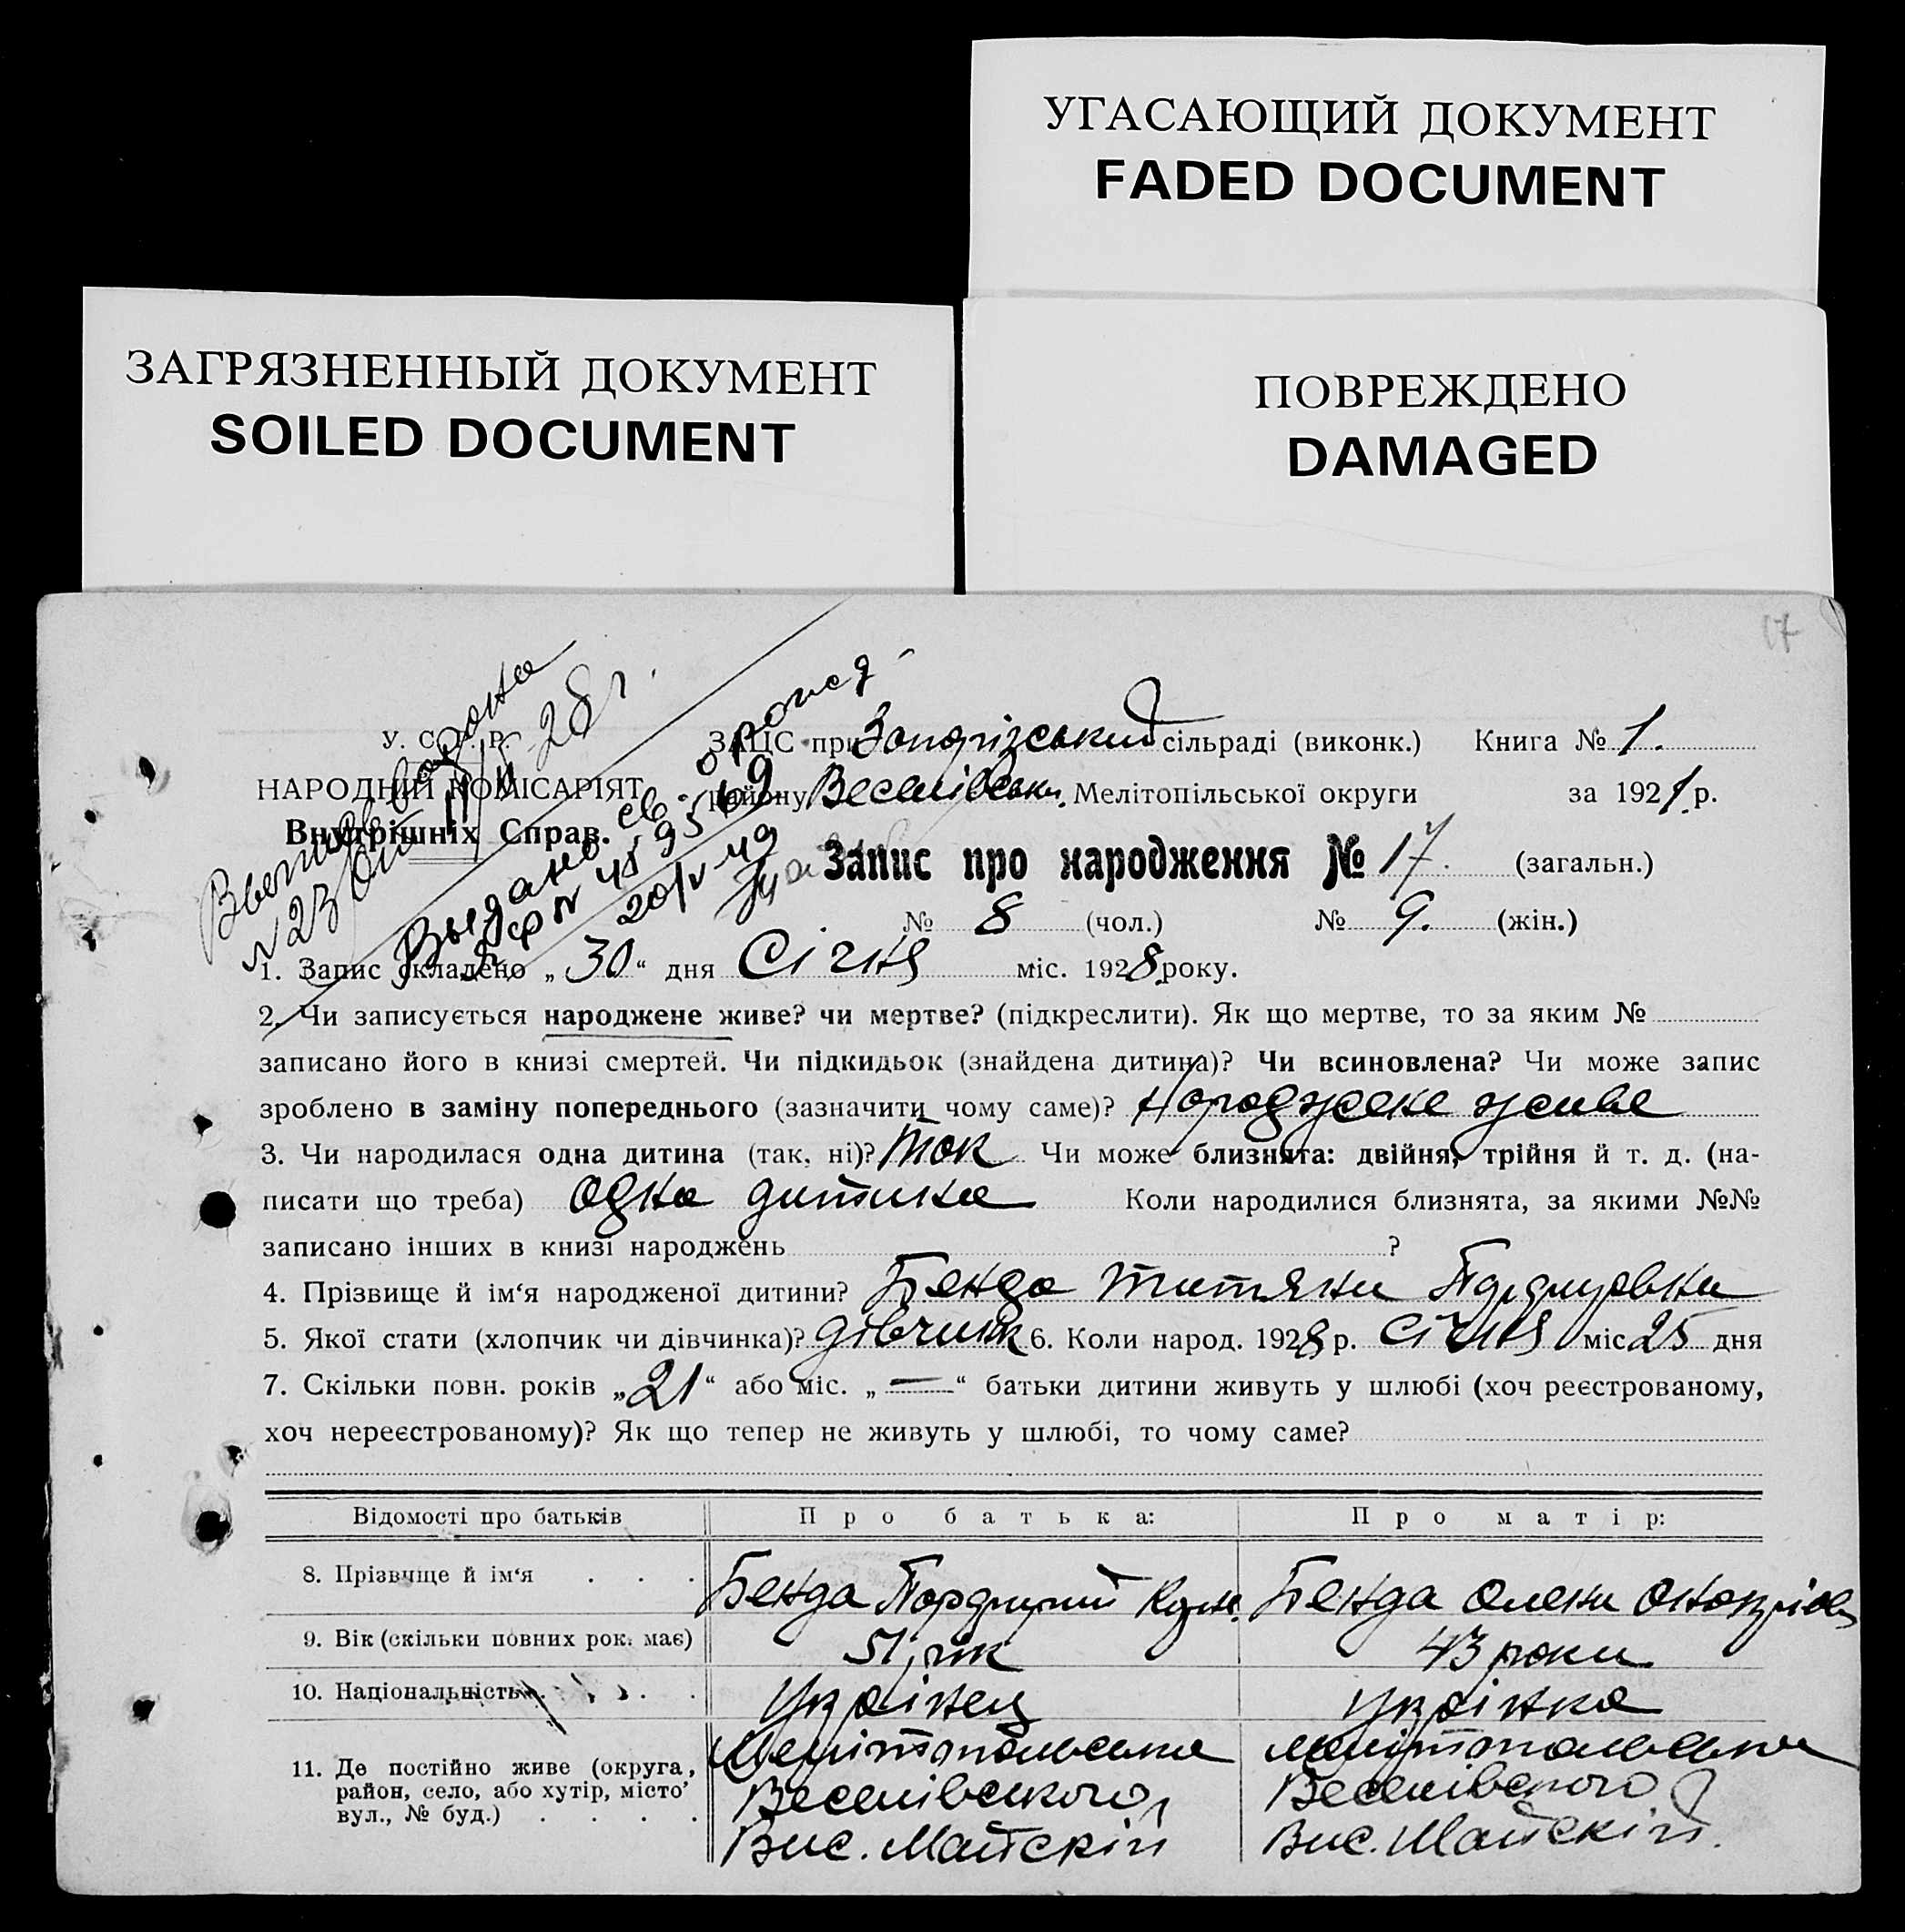 УГАСАЮЩИЙ ДОКУМЕНТ
FADED DOCUMENT
ЗАГРЯЗНЕННЫЙ ДОКУМЕНТ
SOILED DOCUMENT
ПОВРЕЖДЕНО
DAMAGED
17
У. С. Р. Р.
НАРОДНИЙ КОМІСАРІЯТ
Внутрішніх Справ.
28 г.
№ 23
Выдано св. о рожд
20/IV 49
ЗАЦС при сільраді (виконк.) Книга № 1.
району Веселівськ. Мелітопільської округи за 192 р.
Запис про народження № 17. (загальн.)
№ 8 (чол.) № 9. (жін.)
1. Запис складено „30“ дня Січня міс. 1928 року.
2. Чи записується народжене живе? чи мертве? (підкреслити). Як що мертве, то за яким №
записано його в книзі смертей. Чи підкидьок (знайдена дитина)? Чи всиновлена? Чи може запис
зроблено в заміну попереднього (зазначити чому саме)? Народжене живе
3. Чи народилася одна дитина (так, ні)? Так Чи може близнята: двійня, трійня й т. д. (на-
писати що треба) Одна дитина Коли народилися близнята, за якими №№
записано інших в книзі народжень ?
4. Прізвище й ім‘я народженої дитини? Бенда Титяни
5. Якої стати (хлопчик чи дівчинка)? дівчинк 6. Коли народ. 1928 р. Січня міс 25 дня
7. Скільки повн. років „21“ або міс. „—“ батьки дитини живуть у шлюбі (хоч реєстрованому,
хоч нереєстрованому)? Як що тепер не живуть у шлюбі, то чому саме?
Відомості про батьків Про батька: Про матір:
8. Прізвище й ім‘я . . . Бенда Бенда Олена
9. Вік (скільки повних рок. має) 51 рік 43 роки
10. Національність . . . . Українец Українка
11. Де постійно живе (округа, Мелітопольська Мелітопольська
район, село, або хутір, місто Веселівського Веселівского
вул., № буд.) . . . . Вис. Майскій Вис. Майскій.